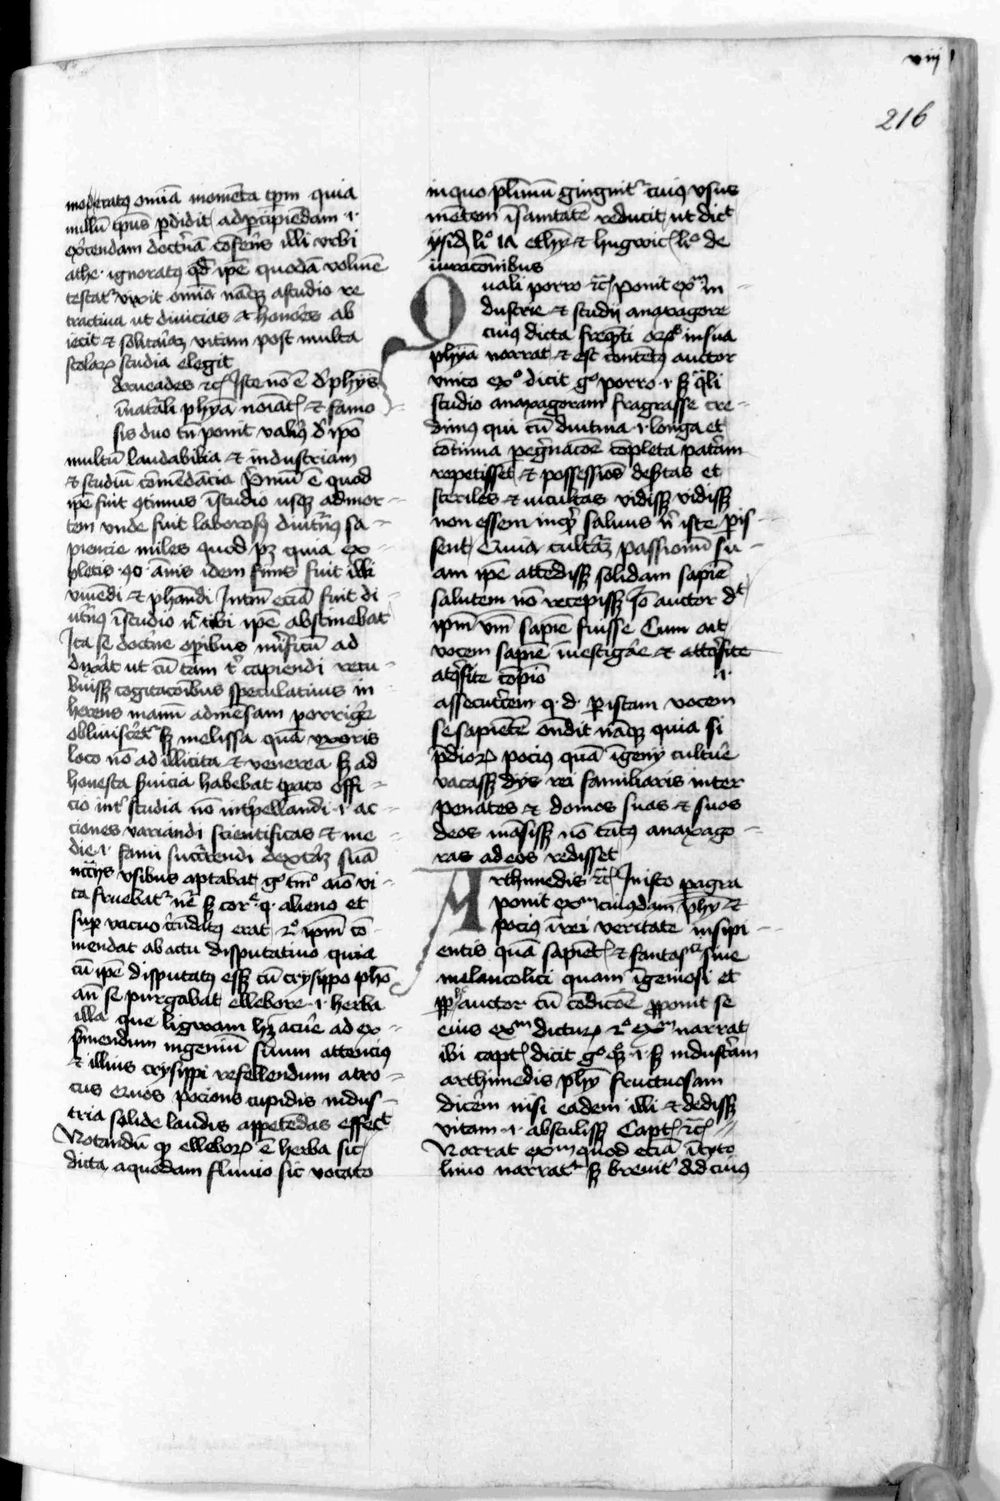 viij
216
moderatus omīa momēta tpm quia
nullū tpus pdidit ad pcipiendam ·i·
exercendam doctrīa cōferēs illi vrbi
athe · ignoratus qd ipe quodā volumē
testatr vixit omīa nāqz a studio re
tractiua ut diuicias et honōres ab
iecit et solitariaz vitam post multa
scolarz studia elegit
Carneades rc Iste nō ē d phijs
i natali phya noiāt et famo
sis duo tn ponit valius d ipo
multū laudabilia et industriam
et studiū cōmēdācia Primū ē quod
ipe fuit ꝯtinuus ī studio usqz ad mor
tem vnde fuit laboros diutius sa
piencie miles quod pz quia ex
pletis ·90· ānis idem finis fuit illi
viuēdi et phandi Intm eciā fuit di
ī studio cibi ipe abstinebat
Ita se doctrīe opibus mirificū ad
dixat ut cū tam capiendi recu
buisz cogitacōibus speculatiuis in
herens manū ad mēsam porrige
obliuiscer sz melissa quā vxoris
loco nō ad illicita et venerea sz ad
honesta suicia habebat tpato offi
cio int studia nō intpellandi ·i· ac
ciones variandi scientificas et ine
die ·i· fami succurendi dextaz suā
vsibus aptabat g tm aīo vi
ta fruebatr sz cor q alieno et
sup vacuo circūdatus erat ipm cō
mendat ab actu disputatiuo quia
cū ipe disputatus essz cū crysippo pho
an se purgabat ellebore ·i· herba
illa que ligwam hz acuē ad ex
pmendum ingeniū suum attencius
et illius crysippi refellendum atro
cius Quos pocions cupidis indus
tria solide laudis appetēdas effec
Notandū q elleborz ē herba sic
dicta a quodam fluuio sic vocato
in quo plimū gingnit cuius vsus
mētem ī sanitatē reducit ut dict
ysid li 17 ethy et hugwic li de
iuracōnibus
Quali porro rc ponit exm in
dustrie et studij anaxagore
cuius dicta freqnti in sua
phya narrat et est contētus auctor
vnico exo dicit g porro ·i· sz qli
studio anaxagoram fragrasse cre
dimus qui cū diutina ·i· longa et
cōtinua pegnacōe cōpleta patam
repetisset et possessiōs desertas et
steriles et incultas vidissz vidissz
non essem inqt saluus n iste pis
sent Quia cultaz passionū su
am ipe attēdissz solidam sapie
salutem nō recepissz Iō auctor dt
ipm vm sapie fuisse Cum ait
vocem sapie inestigāe et attsite
atsite cōpio ·i·
assecuturem q · d · p istam vocem
se sapiētē ondit nāqz quia si
pdiorz pocius quā ī genij cultuē
vacassz dys rei familiaris inter
penates et domos suas et suos
deos māsissz nō tātus anaxago
ras ad eos redisset
Arthimedis rc In isto pagra
ponit exm cuiusdam phy et
pocius ī rei veritate insipi
entis quā sapiēt et fantastici siue
melancolici quam īgeniosi et
auctor cū cōdicōe pponit se
eius exm dicturz exm narrat
ibi capt dicit g ·i· sz industriam
arthimedis phy fructuosam
dicēm nisi eadem illi et dedissz
vitam ·i· abstulissz Capt rc
Narrat exm quod eciā ī tyto
liuio narratr sz breuit ad cuius